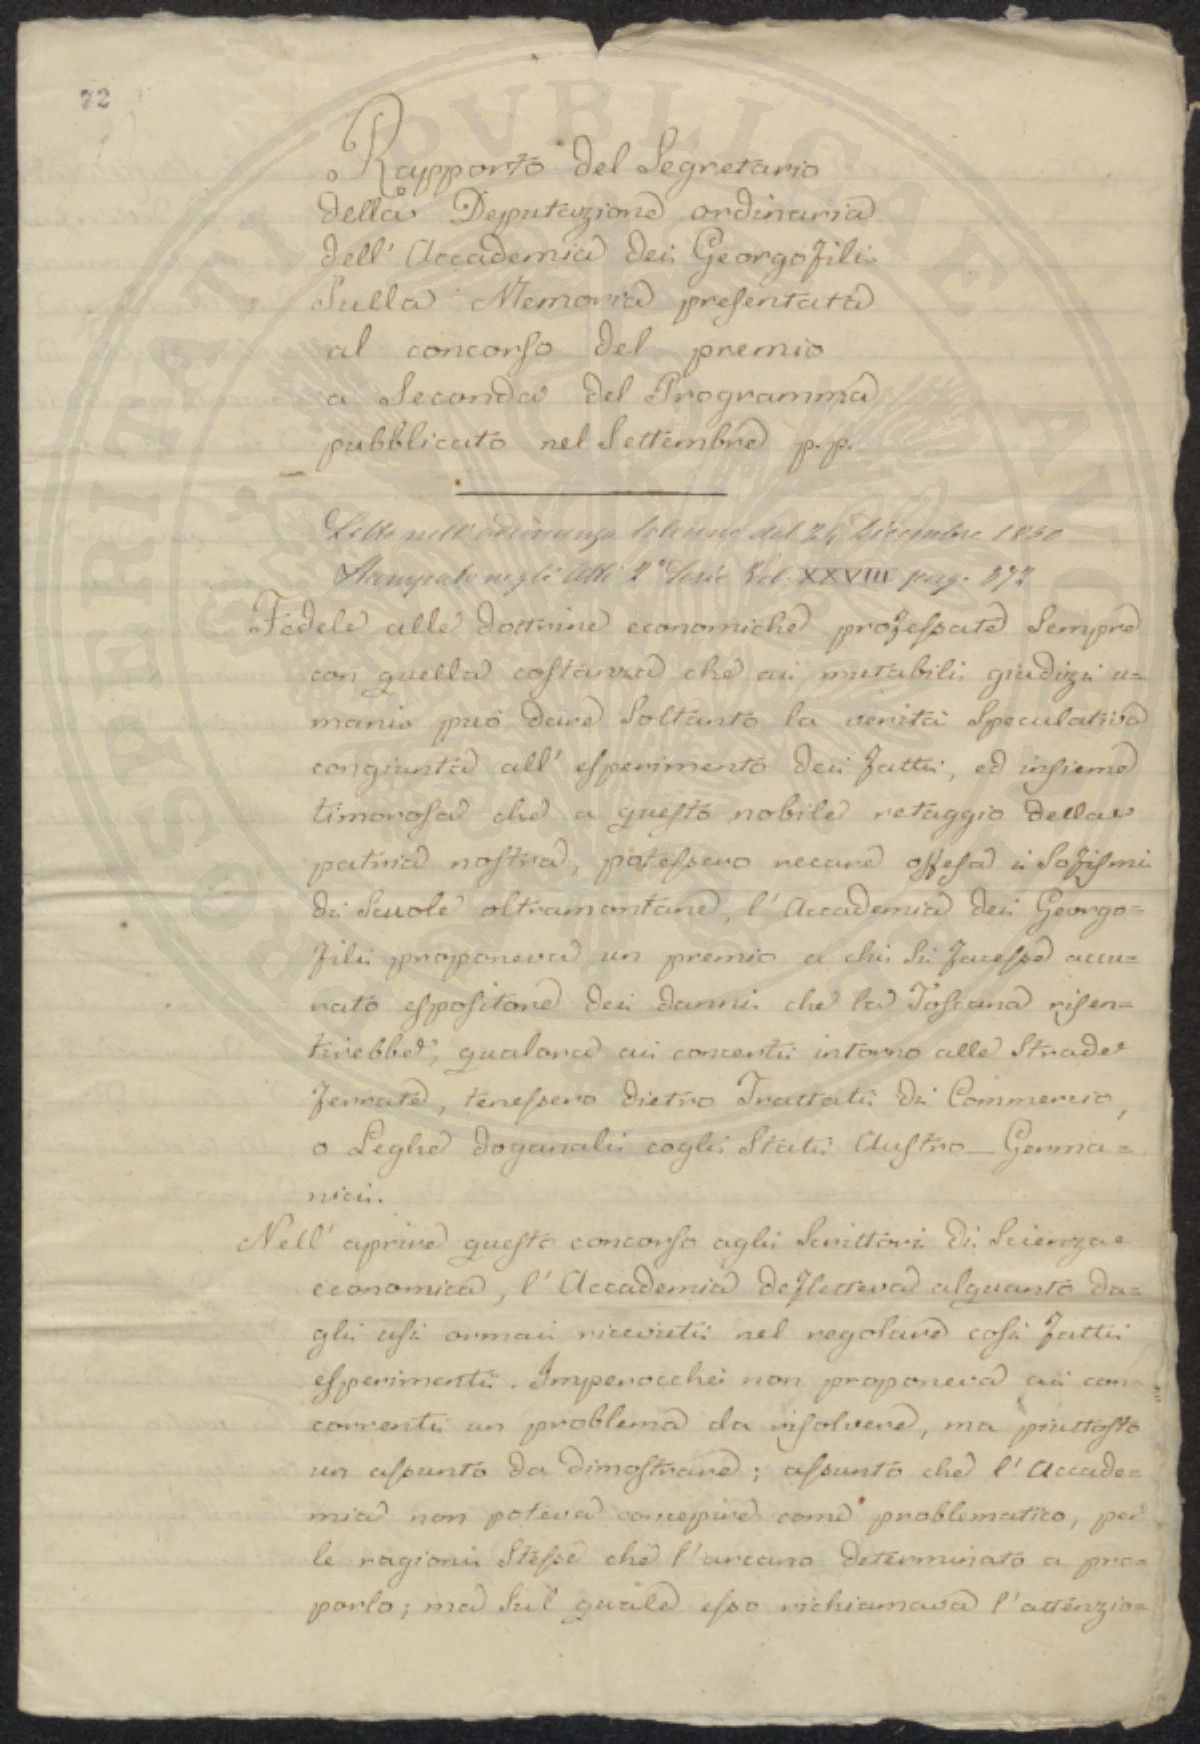 72
Rapporto del Segretario
della Deputazione ordinaria
dell' Accademia dei Georgofili
Sulla Memoria presentata
al concorso del premio
a Seconda del Programma
pubblicato nel Settembre p.p.
Letto nell' adunanza solenne del 24 Dicembre 1850
Stampato negli Atti 2ª Serie Vol. XXVIII pag. 373
Fedele alle dottrine economiche professate Sempre
con quella costanza che ai mutabili giudizi u=
mani può dare Soltanto la verità Speculativa
congiunta all' esperimento dei fatti, ed insieme
timorosa che a questo nobile retaggio della
patria nostra, potessero recare offesa i Sofismi
di Scuole oltramontane, l' Accademia dei Georgo=
fili proponeva un premio a chi Si facesse accu=
rato espositore dei danni che la Toscana risen=
tirebbe, qualora ai concerti intorno alle Strade
ferrate, tenessero dietro Trattati di Commercio,
o Leghe doganali cogli Stati Austro-Germa=
nici.
Nell' aprire questo concorso agli Scrittori di Scienza
economica, l' Accademia defletteva alquanto da=
gli usi ormai ricevuti nel regolare così fatti
esperimenti. Imperocchè non proponeva ai con=
correnti un problema da risolvere, ma piuttosto
un assunto da dimostrare; assunto che l' Accade=
mia non poteva concepire come problematico, per
le ragioni Stesse che l' arcano determinato a pro=
porlo; ma Sul quale esso richiamava l' attenzio=